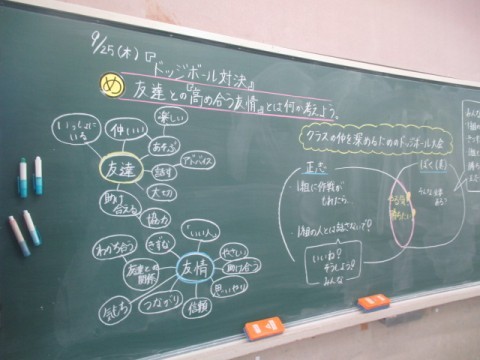 9/25(木)『ドッジボール対決』
め
友達との『高め合う友情』とは何か考えよう。
いっしょにいる
仲いい
楽しい
あそぶ
アドバイス
友達
話す
大切
助け合える
協力
わかち合う
きずな
「いい人」
やさしい
助け合う
友達との関係
友情
思いやり
気もち
つながり
信頼
クラスの仲を深めるためのドッジボール大会
正志
1組に作戦が
もれたら
1組の人とは話さないで?
いいね?
そうしよう?
みんな
やる気
勝ちたい
ぼく(勇)